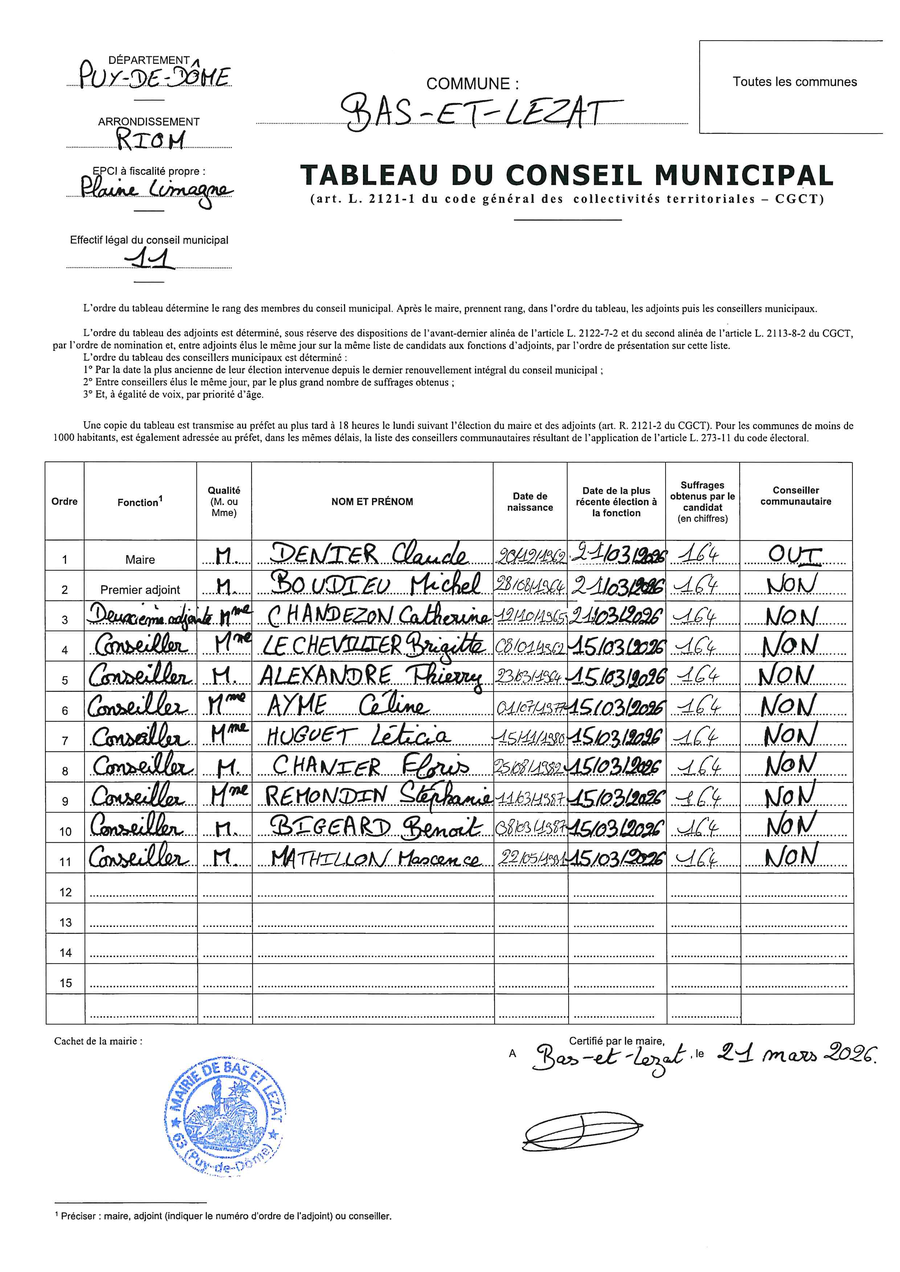 DÉPARTEMENT
PUY-DE-DÔME
ARRONDISSEMENT
RIOM
EPCI à fiscalité propre :
Plaine Limagne
Effectif légal du conseil municipal
11
COMMUNE :
BAS-ET-LEZAT
Toutes les communes
TABLEAU DU CONSEIL MUNICIPAL
(art. L. 2121-1 du code général des collectivités territoriales – CGCT)
L'ordre du tableau détermine le rang des membres du conseil municipal. Après le maire, prennent rang, dans l'ordre du tableau, les adjoints puis les conseillers municipaux.
L'ordre du tableau des adjoints est déterminé, sous réserve des dispositions de l'avant-dernier alinéa de l'article L. 2122-7-2 et du second alinéa de l'article L. 2113-8-2 du CGCT,
par l'ordre de nomination et, entre adjoints élus le même jour sur la même liste de candidats aux fonctions d'adjoints, par l'ordre de présentation sur cette liste.
L'ordre du tableau des conseillers municipaux est déterminé :
1° Par la date la plus ancienne de leur élection intervenue depuis le dernier renouvellement intégral du conseil municipal ;
2° Entre conseillers élus le même jour, par le plus grand nombre de suffrages obtenus ;
3° Et, à égalité de voix, par priorité d'âge.
Une copie du tableau est transmise au préfet au plus tard à 18 heures le lundi suivant l'élection du maire et des adjoints (art. R. 2121-2 du CGCT). Pour les communes de moins de
1000 habitants, est également adressée au préfet, dans les mêmes délais, la liste des conseillers communautaires résultant de l'application de l'article L. 273-11 du code électoral.
Ordre Fonction1 Qualité (M. ou Mme) NOM ET PRÉNOM Date de naissance Date de la plus récente élection à la fonction Suffrages obtenus par le candidat (en chiffres) Conseiller communautaire
1 Maire M. DENIER Claude 20/12/1962 21/03/2026 164 OUI
2 Premier adjoint M. BOUDIEU Michel 28/08/1964 21/03/2026 164 NON
3 Deuxième adjointe Mme CHANDEZON Catherine 12/10/1965 21/03/2026 164 NON
4 Conseiller Mme LE CHEVILLIER Brigitte 08/01/1962 15/03/2026 164 NON
5 Conseiller M. ALEXANDRE Thierry 23/03/1964 15/03/2026 164 NON
6 Conseiller Mme AYME Céline 01/07/1977 15/03/2026 164 NON
7 Conseiller Mme HUGUET Léticia 15/11/1980 15/03/2026 164 NON
8 Conseiller M. CHANIER Floris 25/08/1982 15/03/2026 164 NON
9 Conseiller Mme REMONDIN Stéphanie 11/03/1987 15/03/2026 164 NON
10 Conseiller M. BIGEARD Benoit 08/03/1987 15/03/2026 164 NON
11 Conseiller M. MATHILLON Maxence 22/05/1991 15/03/2026 164 NON
12
13
14
15
Cachet de la mairie :
Certifié par le maire,
A Bas-et-Lezat, le 21 mars 2026.
MAIRIE DE BAS ET LEZAT
63 (Puy-de-Dôme)
1 Préciser : maire, adjoint (indiquer le numéro d'ordre de l'adjoint) ou conseiller.